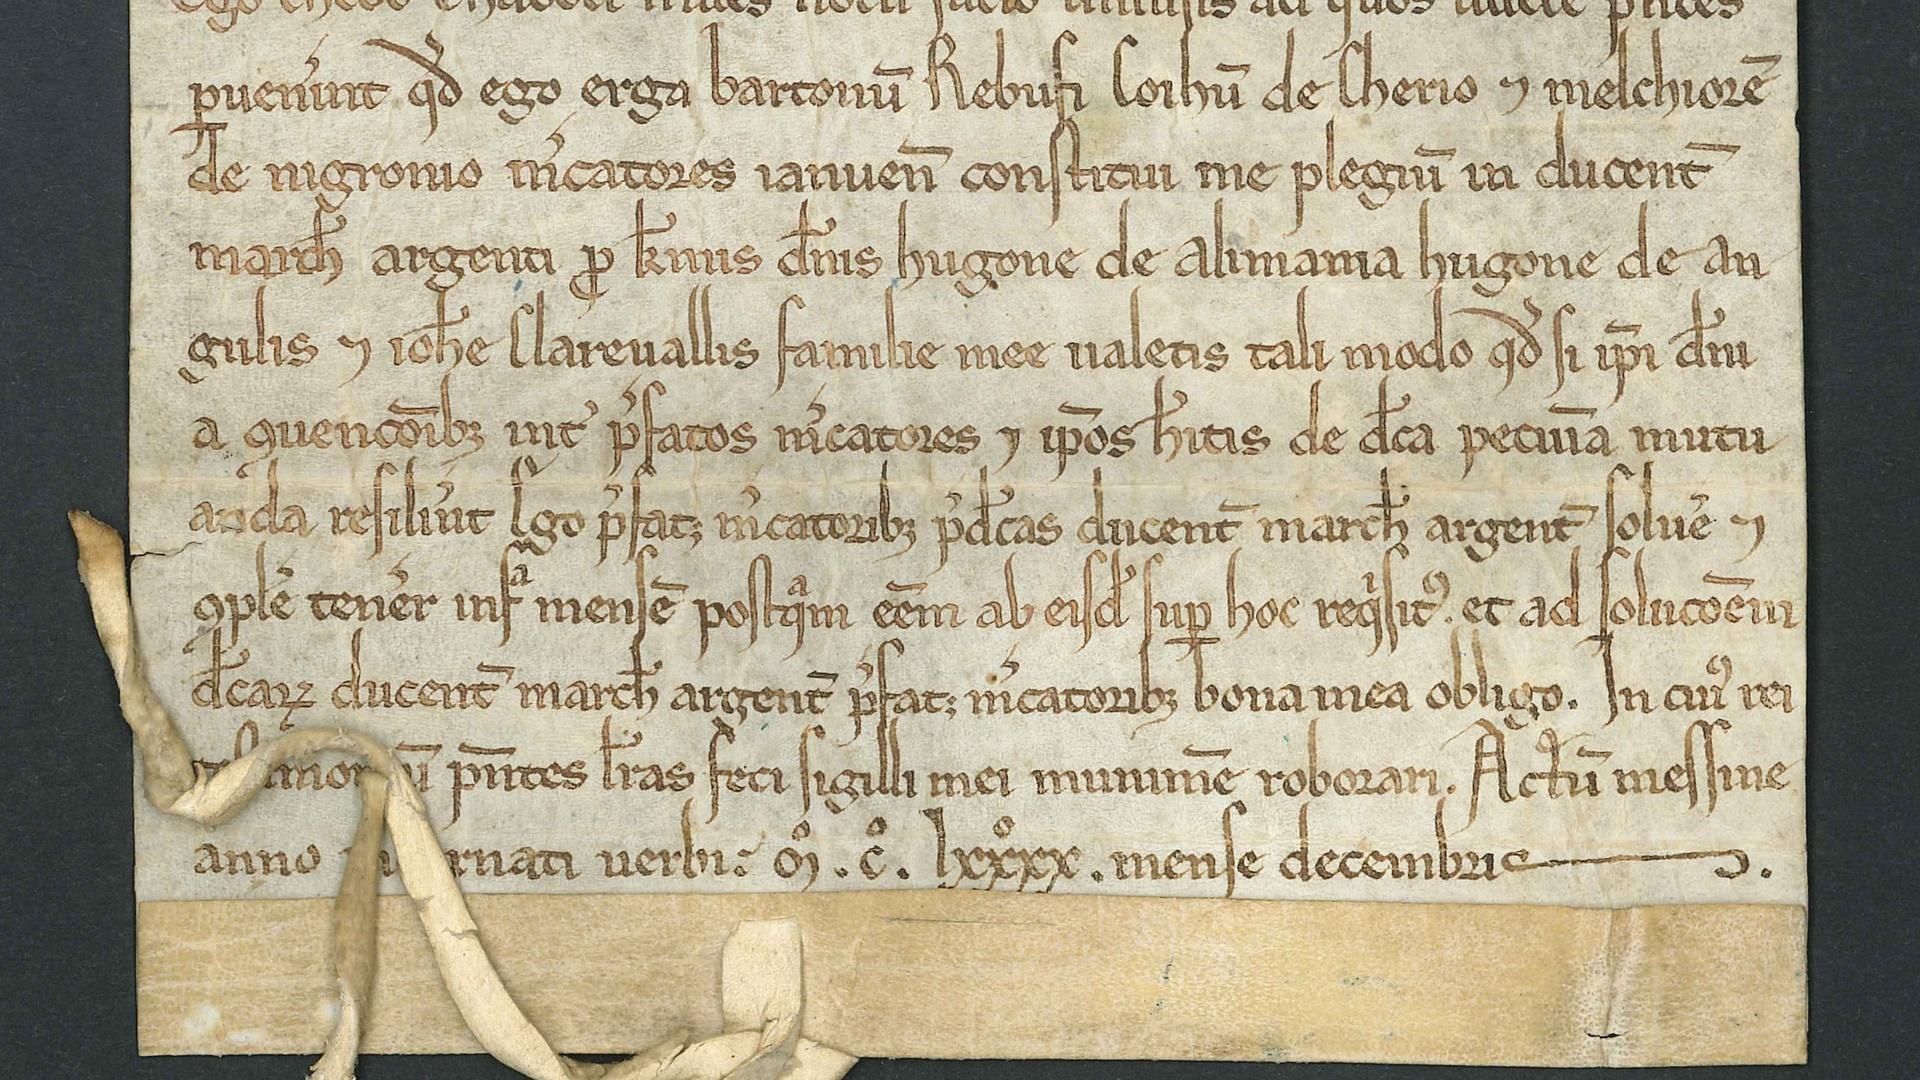 Ego Thebo Chabboti miles notū facio uniuſis ad quos littere pñtes
puen̾int qd̾ ego erga bartonū Rebufi Coihū de Cherio ⁊ melchiorē
de nigronio m̾catores ianuen̄ conſtitui me plegiū in ducent̄
march̄ argenti ꝓ k̄mis d̄nis hugone de alimania hugone de an
gulis ⁊ ioh̄e Clareuallis familie mee ualetis tali modo qd̾ ſi ip̄i d̄ni
a ꝯuencōībꝫ int̾ p̾fatos m̾catores ⁊ ip̄os h̾itis de d̄ca pecuīa mutu
anda reſilīnt Ego p̾fatꝫ m̾catoribꝫ p̾d̄cas ducent̄ march̄ argent̄ ſolu̾e ⁊
ꝯple̾ tene̾r infᵃ menſē poſtqᵃm eēm ab eiſd̾ ſuꝑ hoc reqⁱſitꝰ. et ad ſolucōēm
d̄caꝝ ducent̄ march̄ argent̄ p̾fatꝫ m̾catoribꝫ bona mea obligo. In cuiꝰ rei
pñtes l̄ras feci ſigilli mei munimīe roborari. Actū meſſine
anno uerbi: ᴍ̊. c̊. lxx̊x̊x. menſe decembri.